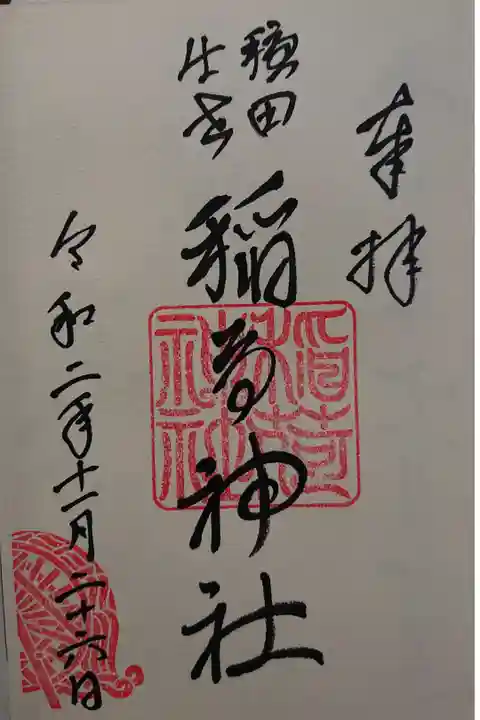 奉拝
稲荷神社
稲荷神社
令和二年十一月二十六日